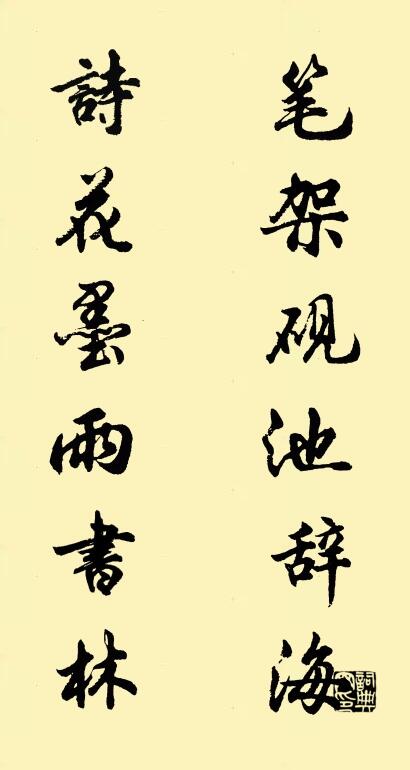 笔架砚池辞海
詩花墨雨書林